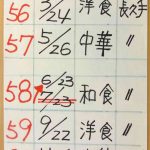 56 3/24 洋食 長久手
57 5/26 中華 〃
58 6/23 7/23 和食 〃
59 9/22 洋食 〃